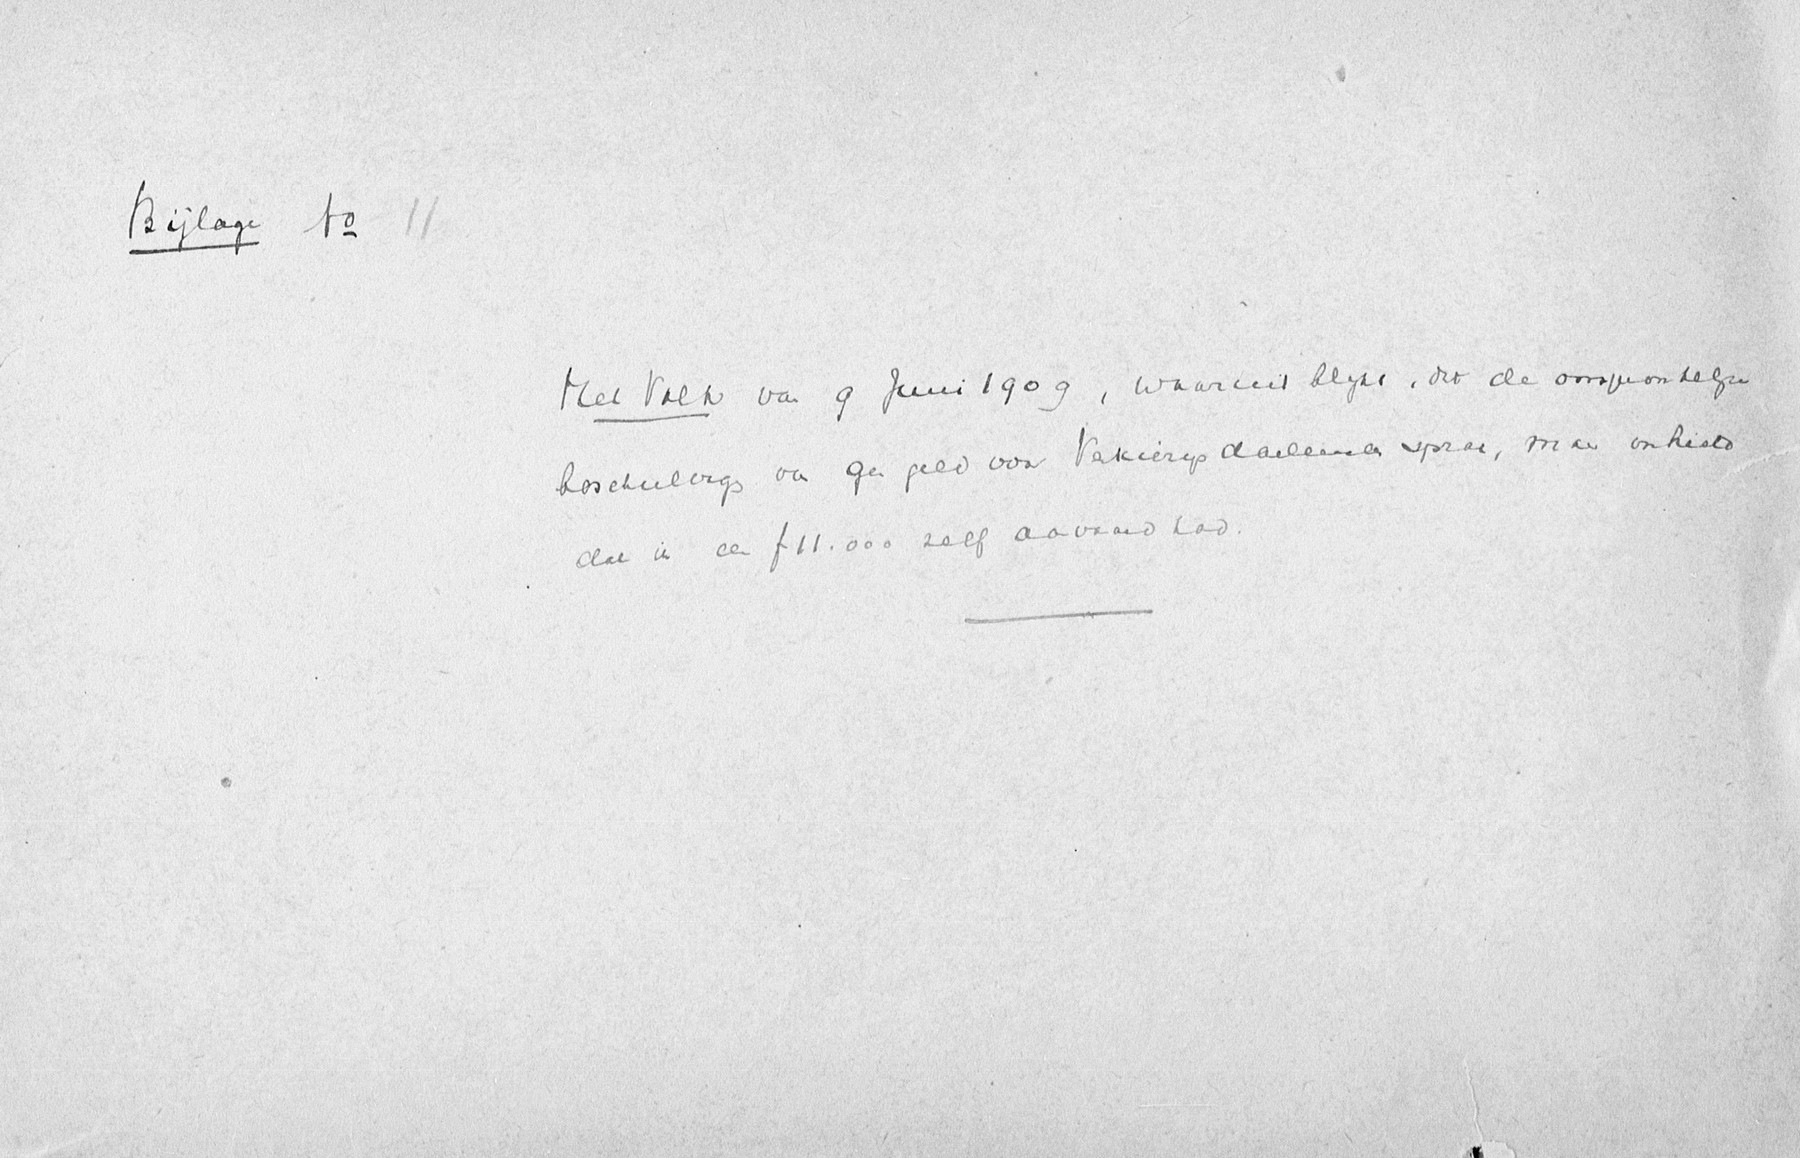 Bijlage No 11
Het Volk van 9 Juni 1909, waaruit blijkt, dat de oorspronkelijke
beschuldigs van geld voor Verkiezingsdoeleinden sprak, maar
dat ik de f 11.000 zelf aanvaard had.